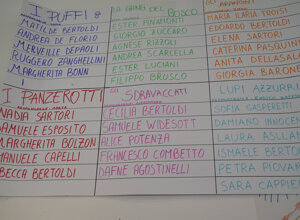 I PUFFI 8
MATILDE BERTOLDI
ANDREA DE FLORIO
MERVEILLE DEPAOLI
RUGGERO ZANGHELLINI
MARGHERITA BONN
LA GANG DEL BOSCO
ESTER PINAMONTI
GIORGIO ZUCCARO
AGNESE RIZZOLI
ANDREA SCARCELLA
ESTER LUCIANI
FILIPPO BRUSCO
MARIA ILARIA TROISI
EDOARDO BERTOLDI
ELENA SARTORI
CATERINA PASQUIN
ANITA DELLASAL
GIORGIA BARONE
I PANZEROTTI
NADIA SARTORI
SAMUELE ESPOSITO
MARGHERITA BOLZON
MANUELE CAPELLI
BECCA BERTOLDI
GLI SDRAVACCATI
CECILIA BERTOLDI
SAMUELE WIDESOTT
ALICE POTENZA
FRANCESCO COMBETTO
DAFNE AGOSTINELLI
LUPI AZZURRI
SOFIA GASPERETTI
DAMIANO INNOCEN
LAURA ASULA
ISMAELE BERTO
PETRA PIOVAN
SARA CAPPIE